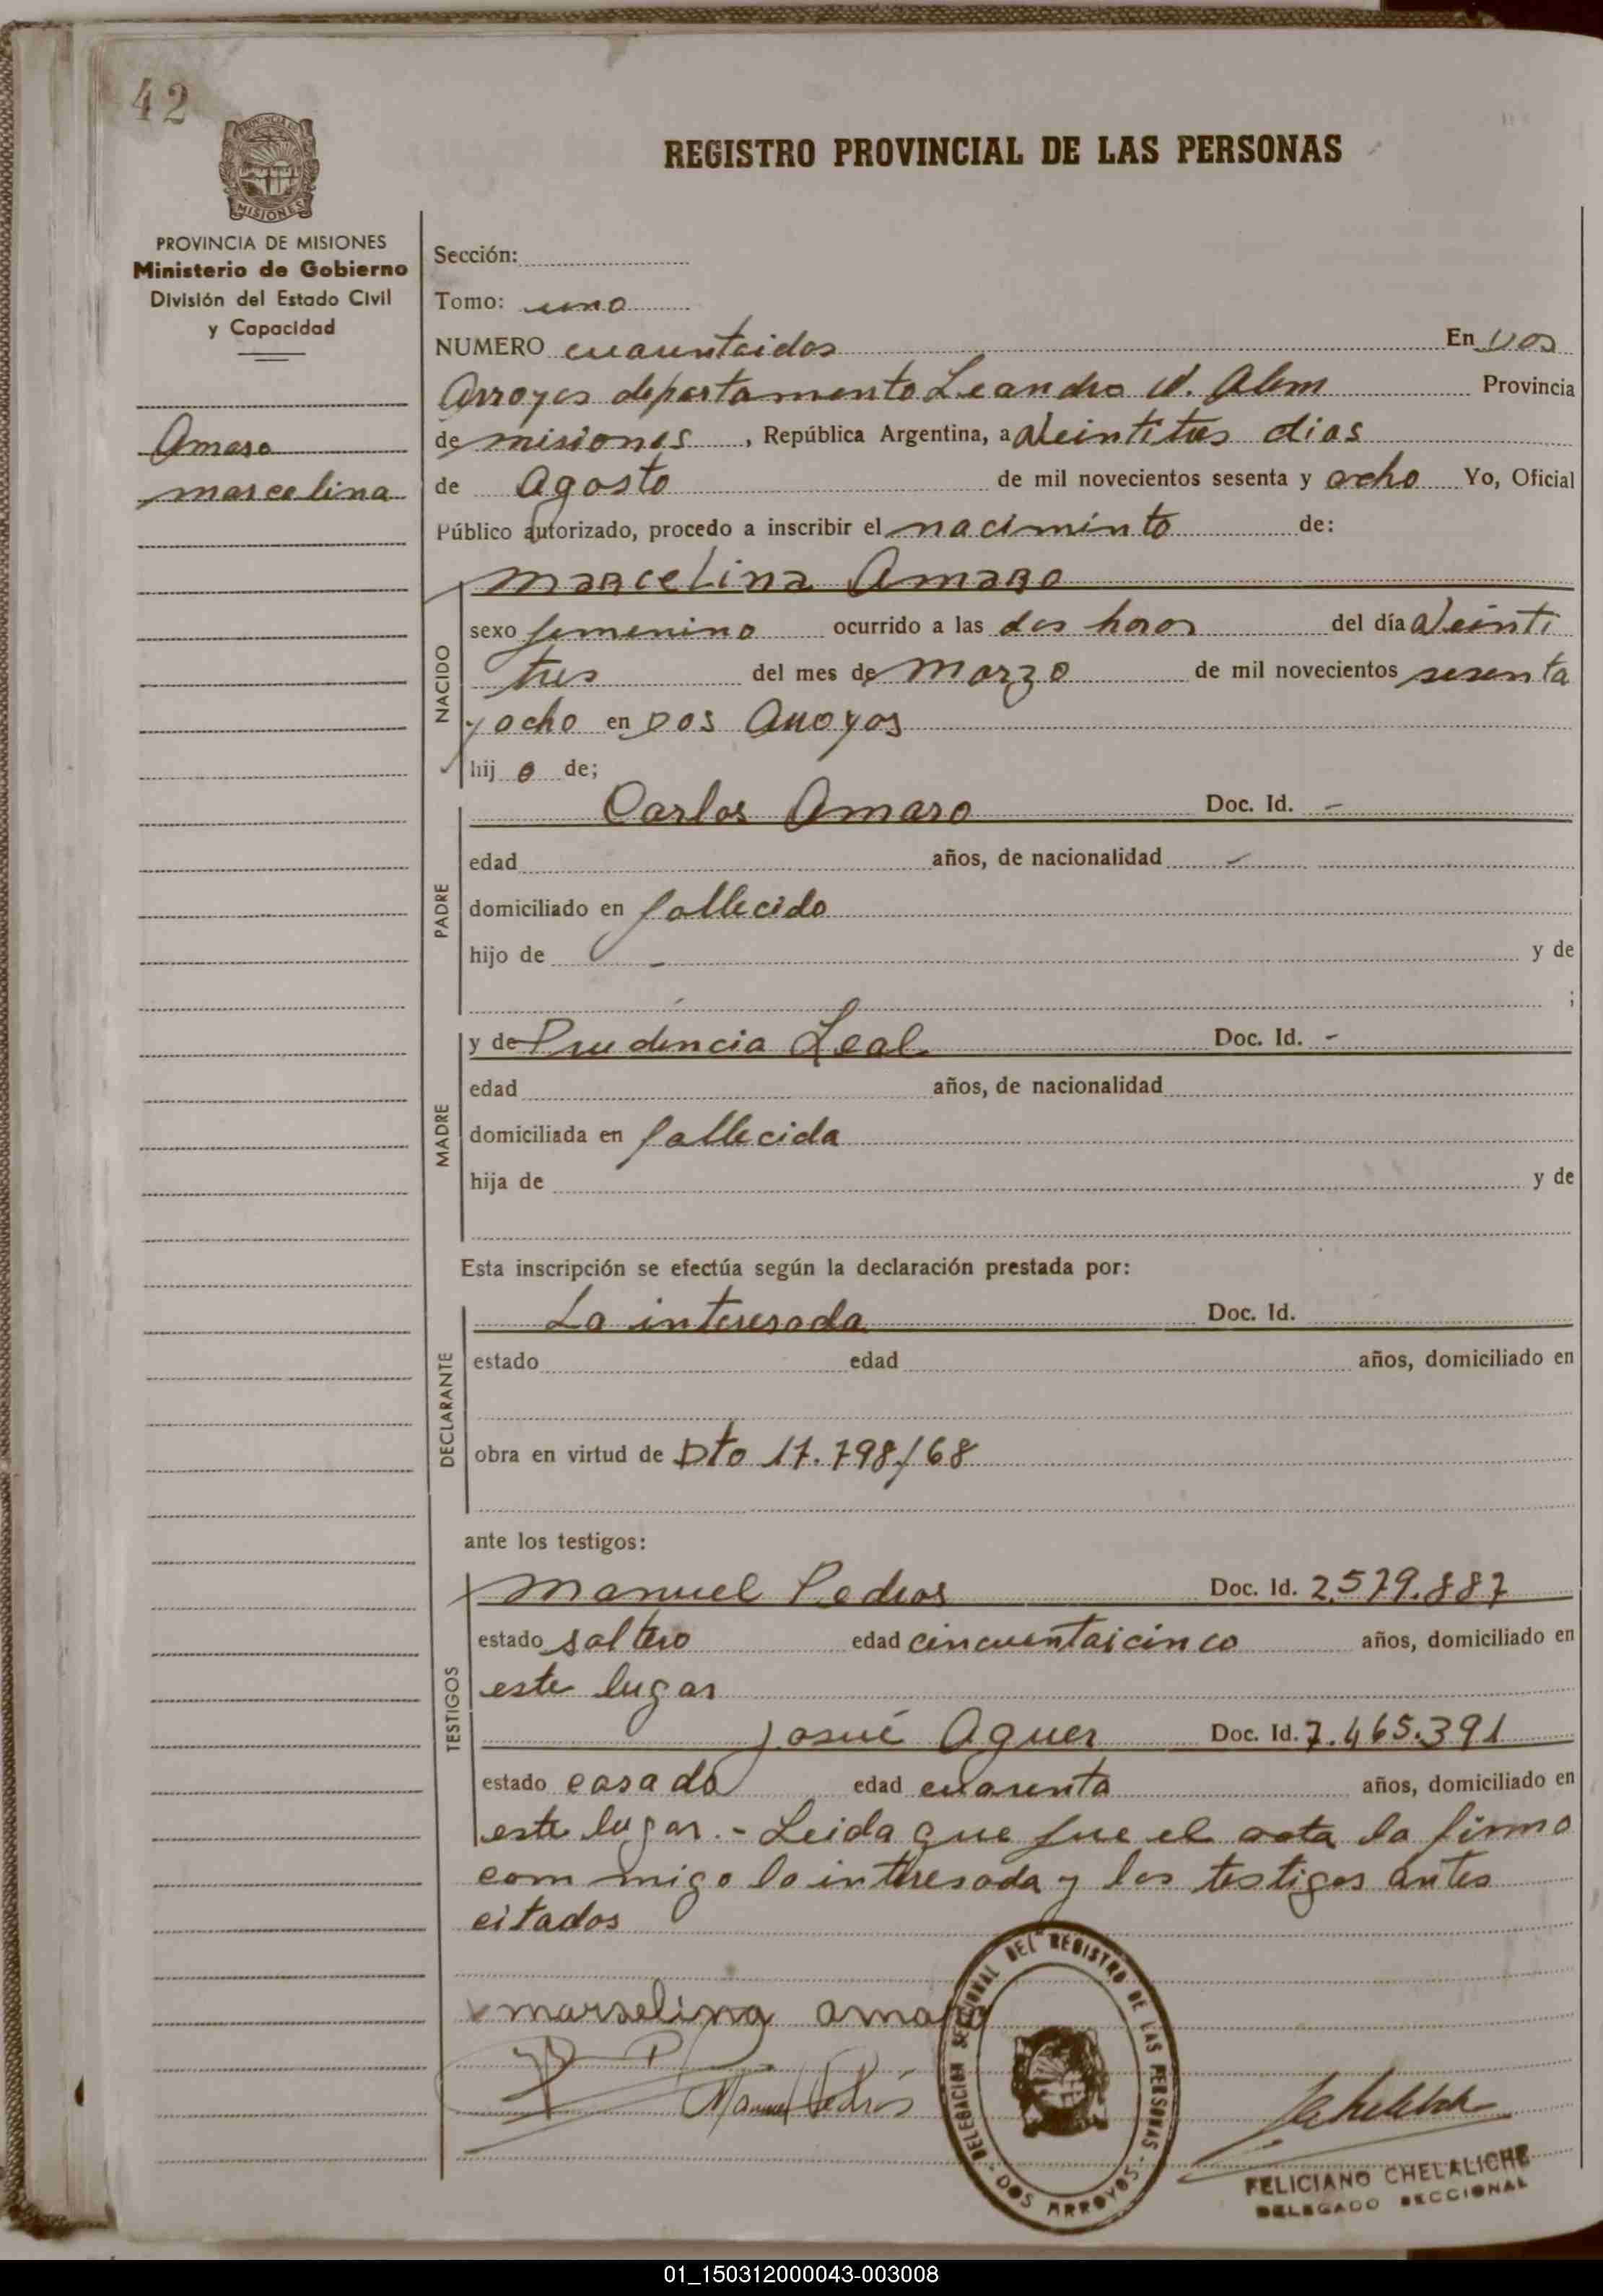 42
REGISTRO PROVINCIAL DE LAS PERSONAS
PROVINCIA DE MISIONES
Ministerio de Gobierno
División del Estado Civil
y Capacidad
Amaro
marcelina
Sección:
Tomo: uno
NUMERO cuarentaidos En Dos
Arroyos departamento Leandro N. Alem Provincia
de misiones, República Argentina, a Veintitres dias
de Agosto de mil novecientos sesenta y ocho Yo, Oficial
Público autorizado, procedo a inscribir el naciminto de:
NACIDO
marcelina Amaro
sexo femenino ocurrido a las dos horas del día Veinti
tres del mes de Marzo de mil novecientos sesenta
y ocho en Dos Arroyos
hij a de;
PADRE
Carlos Amaro Doc. Id. -
edad años, de nacionalidad -
domiciliado en fallecido
hijo de - y de
;
MADRE
y de Prudencia Leal Doc. Id. -
edad años, de nacionalidad
domiciliada en fallecida
hija de y de
Esta inscripción se efectúa según la declaración prestada por:
DECLARANTE
La interesada Doc. Id.
estado edad años, domiciliado en
obra en virtud de Dto 17.798/68
ante los testigos:
TESTIGOS
Manuel Pedros Doc. Id. 2.579.887
estado soltero edad cincuentaicinco años, domiciliado en
este lugar
Josué Aguer Doc. Id. 7.465.391
estado casado edad cuarenta años, domiciliado en
este lugar.- Leida que fue el acta la firma
com migo la interesada y los testigos antes
citados
marselina amaro
Manuel Pedrós
DELEGACION SECCIONAL DEL REGISTRO DE LAS PERSONAS
- DOS ARROYOS -
FELICIANO CHELALICHE
DELEGADO SECCIONAL
01_150312000043-003008